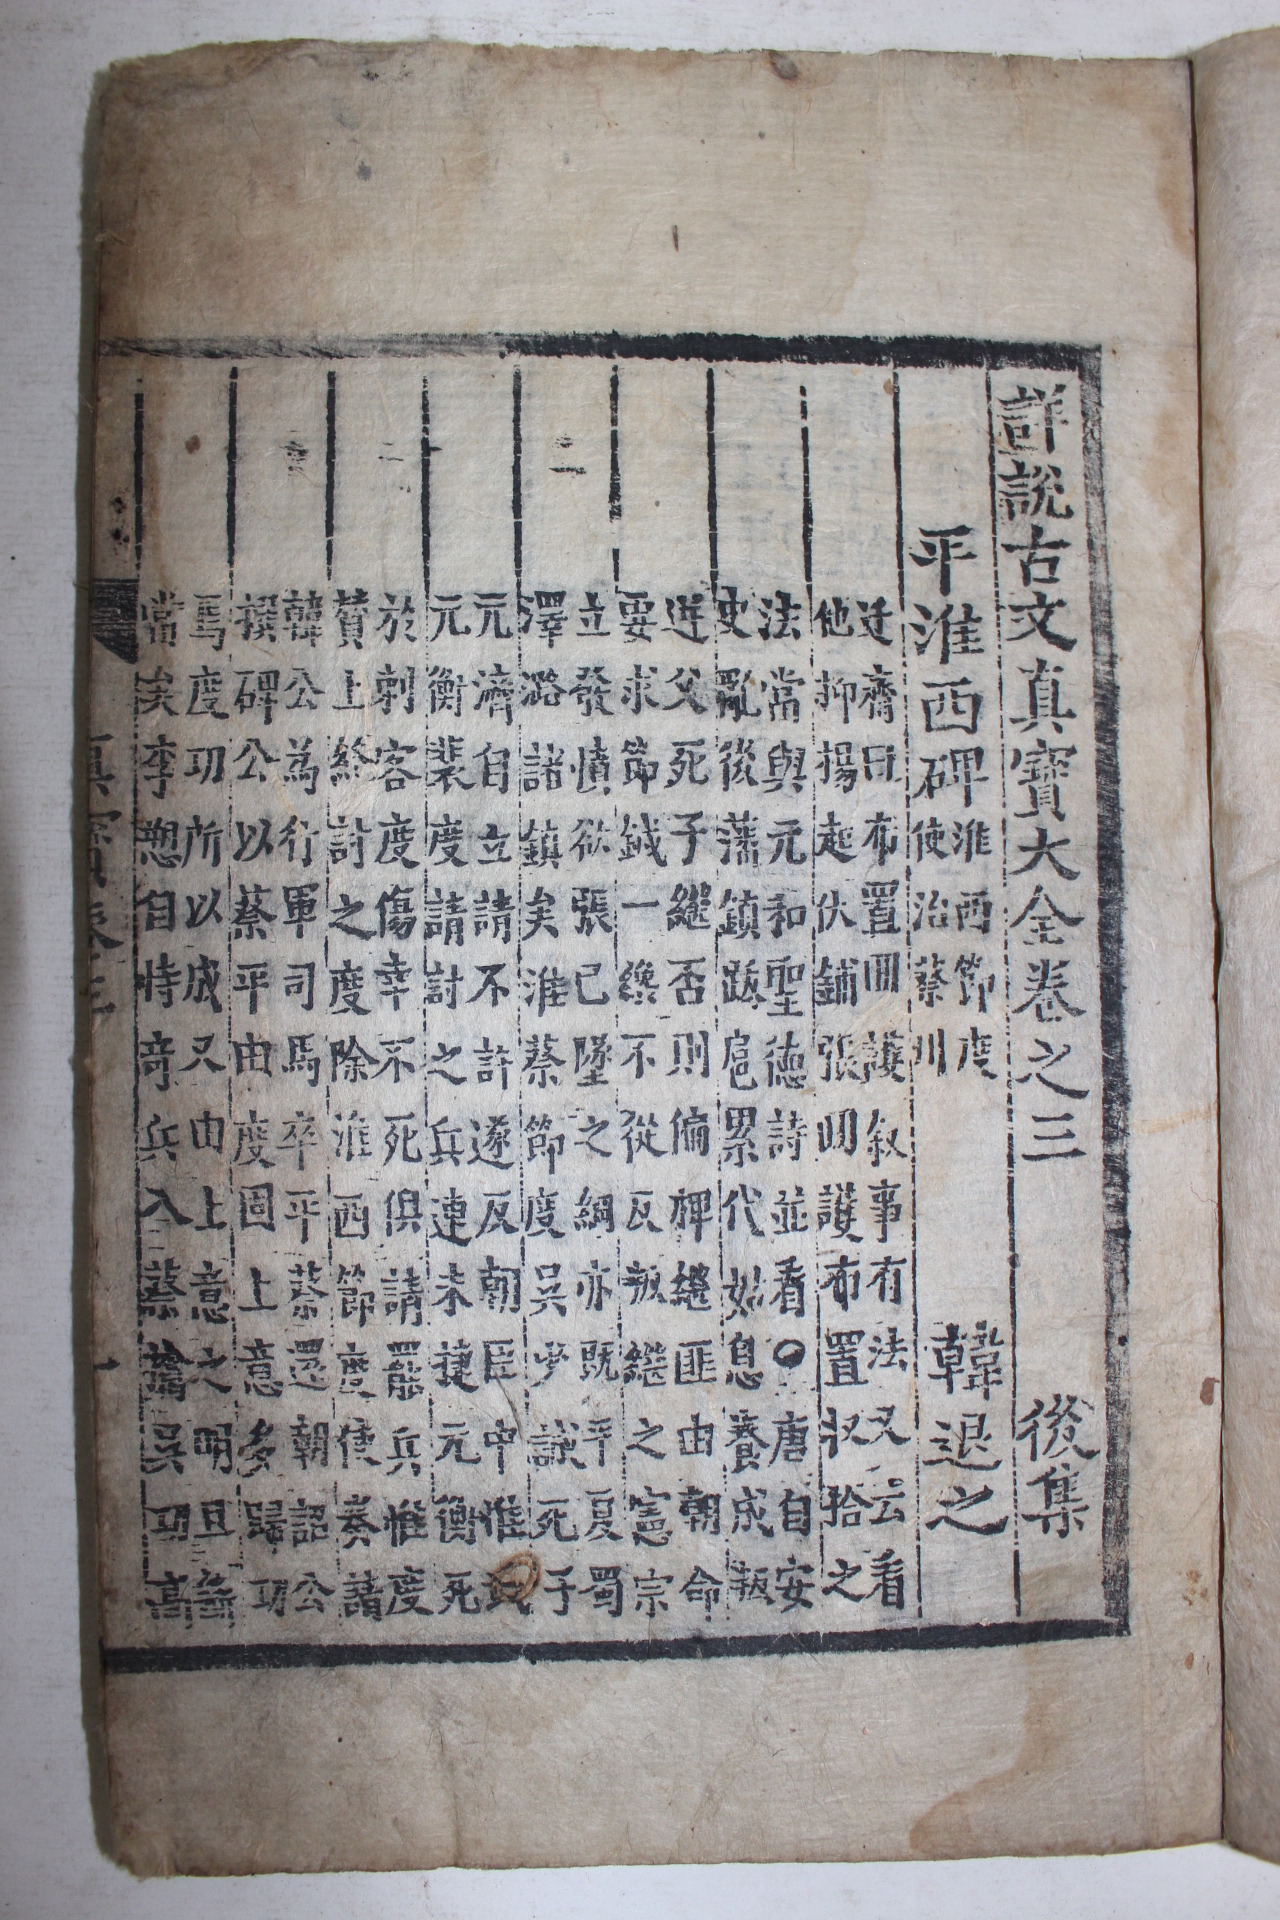 詳說古文眞寶大全卷之三　後集
平淮西碑　韓退之
淮西節度
使治蔡州
迂齋曰布置回護叙事有法又云看
他抑揚起伏鋪張回護布置収拾之
法當與元和聖德詩並看○唐自安
史亂後藩鎮跋扈累代姑息養成叛
逆父死子繼否則偏裨繼匪由朝命
要求節鉞一纔不從反叛繼之憲宗
立發憤欲張已墜之綱亦旣平夏蜀
澤潞諸鎮矣淮蔡節度吳少誠死子
元濟自立請不許遂反朝臣中惟武
元衡裴度請討之兵連未捷元衡死
於刺客度傷幸不死俱請罷兵惟度
贊上終討之度除淮西節度使奏請
韓公爲行軍司馬卒平蔡還朝詔公
撰碑公以蔡平由度固上意多歸功
焉度功所以成又由上意之明且斷
當矣李愬自恃竒兵入蔡擒吳功高
眞寶卷三
一